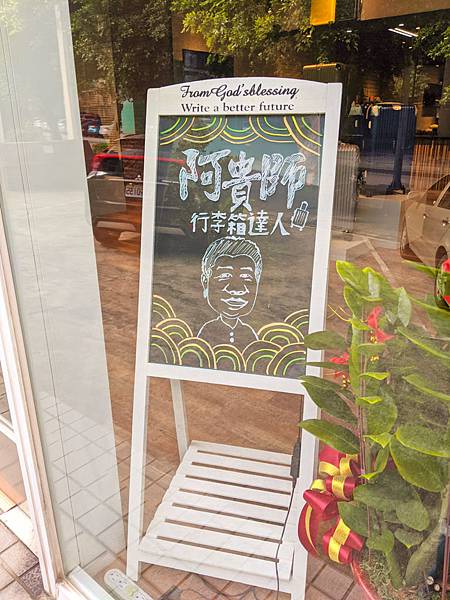 From God'sblessing
Write a better future
阿貴師
行李箱達人